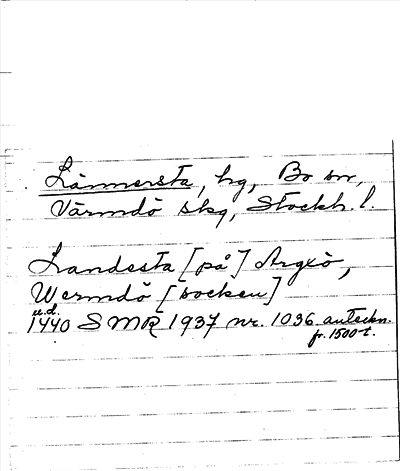 Lännersta, hg, Bo sn,
Värmdö skg, Stockh. l.
Landesta [på] Argxö,
Wermdö [socken]
u.d.
1440 SMR 1937 nr. 1036 anteckn.
fr. 1500-t.